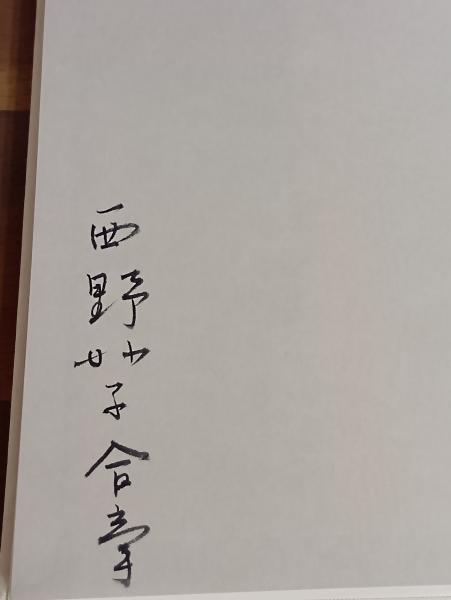 西野妙子合掌